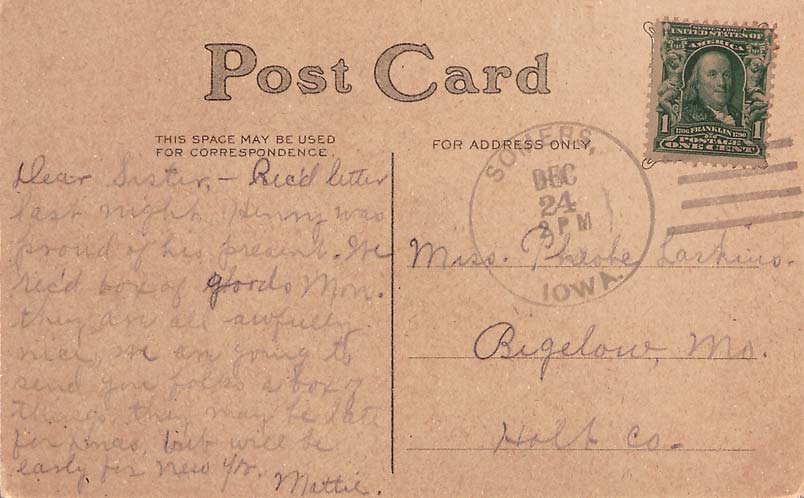 Post Card
THIS SPACE MAY BE USED
FOR CORRESPONDENCE.
FOR ADDRESS ONLY.
SERIES 1902
UNITED STATES OF
AMERICA
1706 FRANKLIN 1790
1 POSTAGE 1
ONE CENT
SOMERS,
DEC
24
3 PM
IOWA.
Dear Sister, - Rec'd letter
last night. Henry was
proud of his present. We
rec'd box of goods Mon.
they are all awfully
nice, we are going to
send you folks a box of
things, they may be late
for Xmas but will be
early for New Yr.
Mattie.
Miss. Pheobe Larkins.
Bigelow, Mo.
Holt Co.